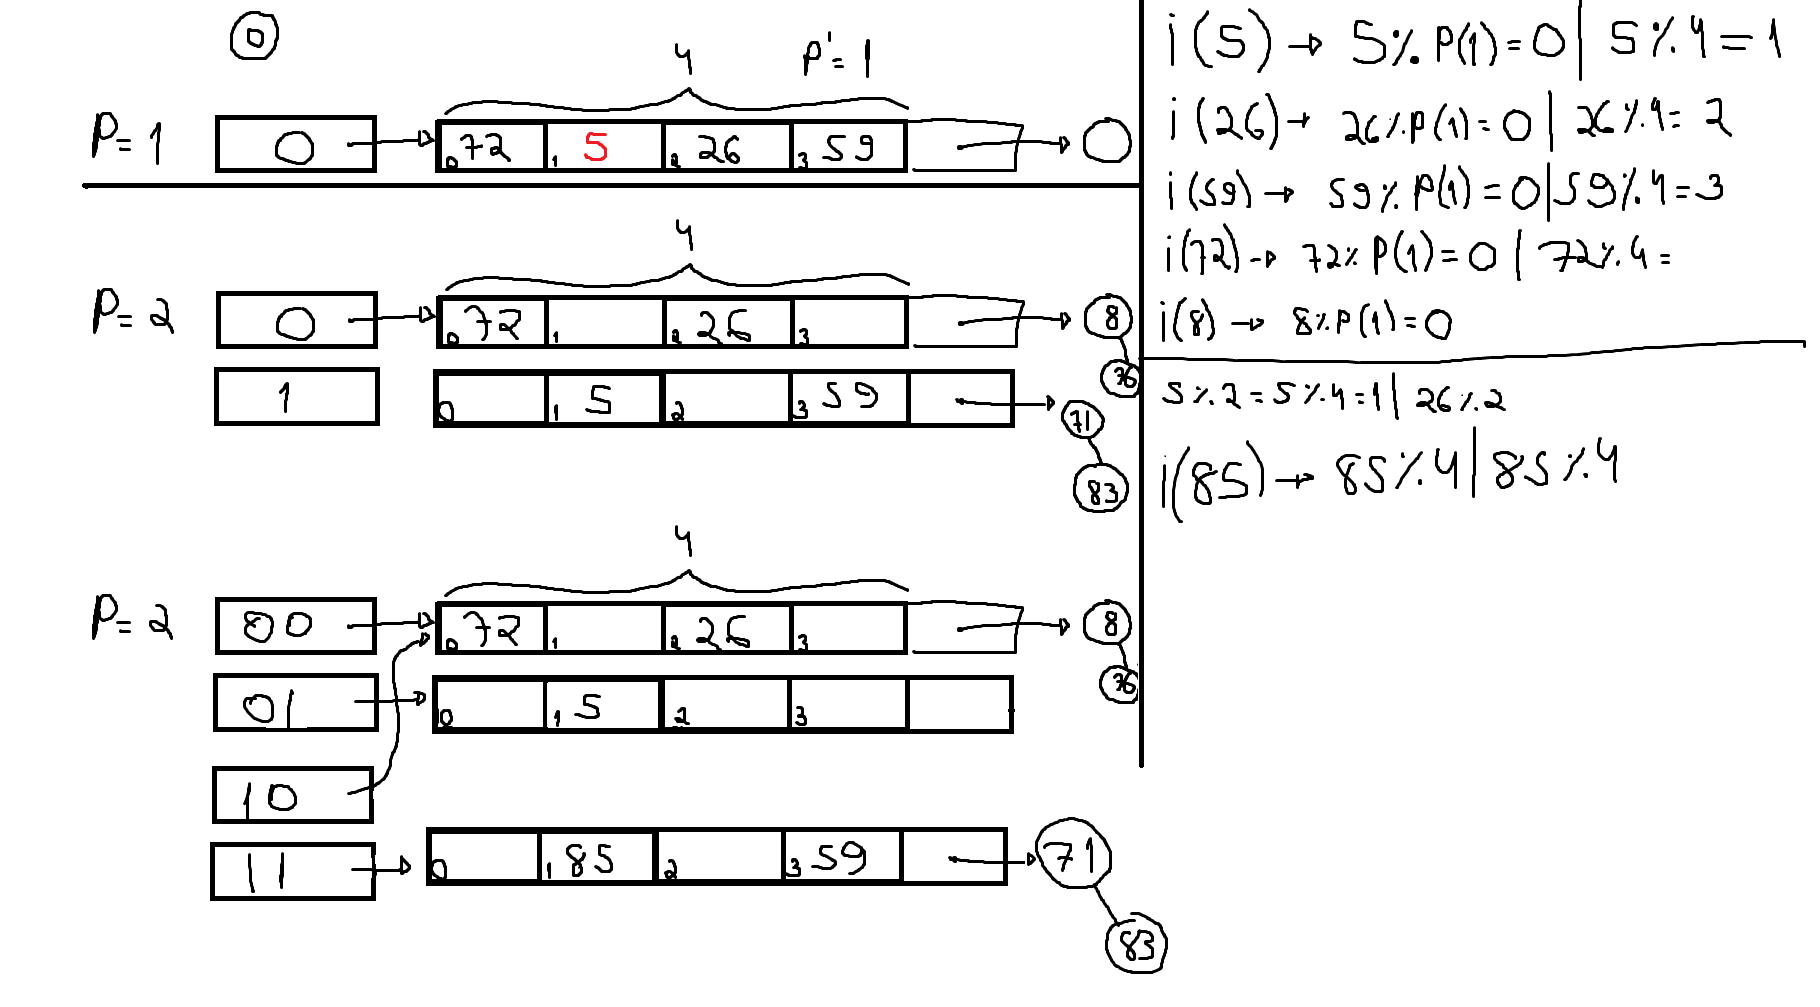 0
4 P'=1
P=1 0 0 72 1 5 2 26 3 59
4
P=2 0 0 72 1 2 26 3 8
36
1 0 1 5 2 3 59 71
83
4
P=2 00 0 72 1 2 26 3 8
36
01 0 1 5 2 3
10
11 0 1 85 2 3 59 71
83
i(5) → 5% P(1)=0 | 5%4=1
i(26) → 26%P(1)=0 | 26%4=2
i(59) → 59% P(1)=0 | 59%4=3
i(72) → 72% P(1)=0 | 72%4=
i(8) → 8%P(1)=0
5%2=5%4=1 | 26%2
i(85) → 85%4 | 85%4